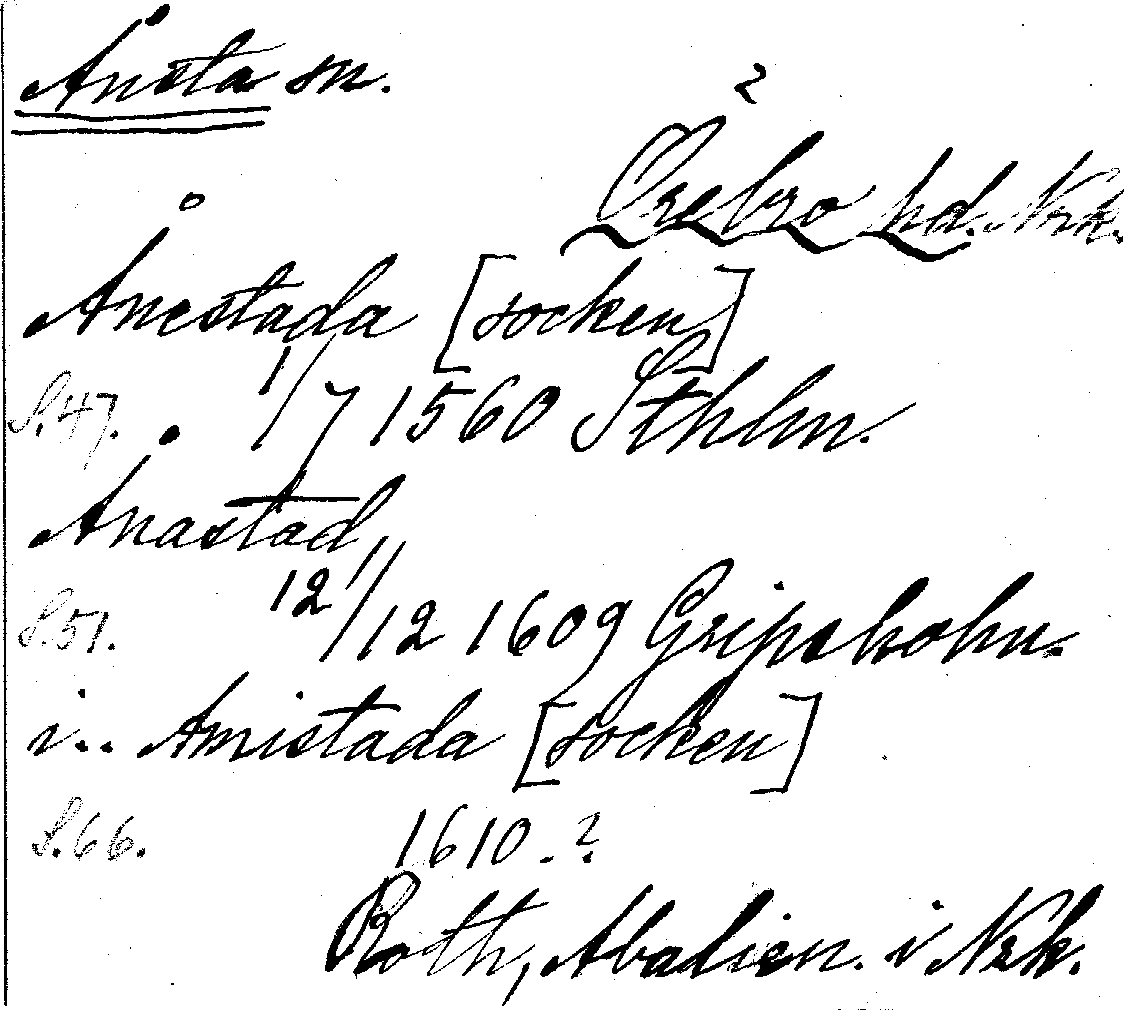 Ånsta sn.
2
Örebro hd. Nrk.
Ånestada [socken]
S.47. 1/7 1560 Sthlm.
Ånastad
S.51. 12/12 1609 Gripsholm.
i.. Amistada [socken]
S.66. 1610.?
Roth, Abalien. i Nrk.